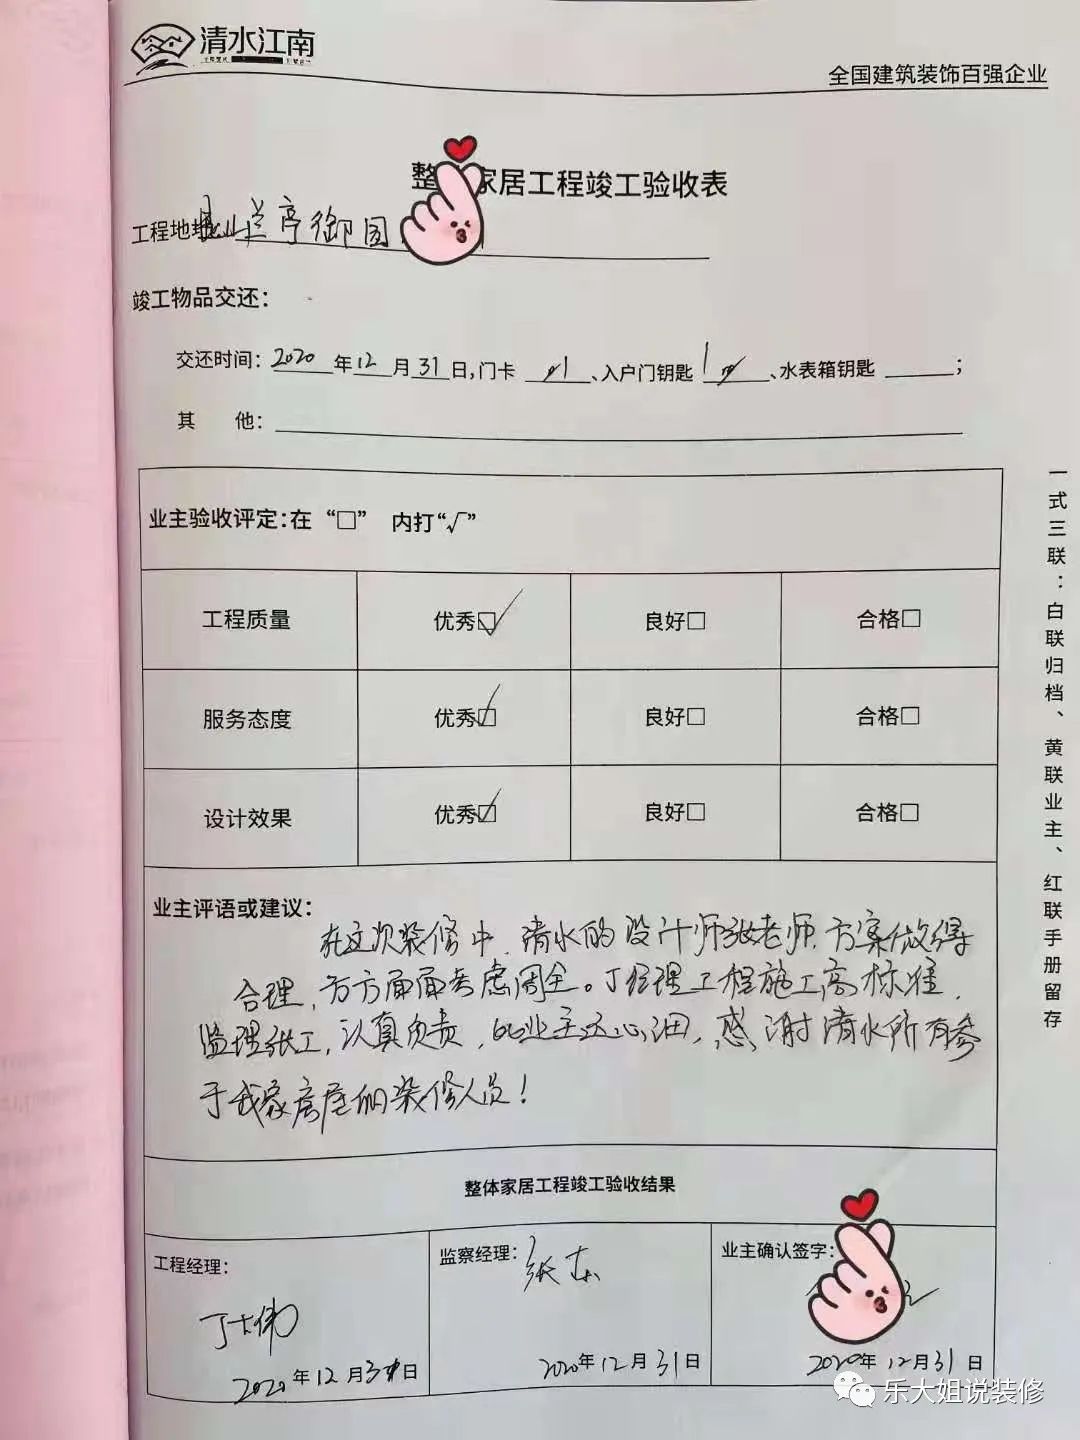 清水江南
全国建筑装饰百强企业
整 家居工程竣工验收表
工程地 兰亭御园
竣工物品交还：
交还时间：2020年12月31日，门卡 、入户门钥匙 1 、水表箱钥匙 ；
其 他：
业主验收评定：在“□” 内打“√”
工程质量 优秀☑ 良好□ 合格□
服务态度 优秀☑ 良好□ 合格□
设计效果 优秀☑ 良好□ 合格□
业主评语或建议：
在这次装修中，清水的设计师张老师，方案做得
合理，方方面面考虑周全。丁经理工程施工高标准，
监理张工，认真负责，比业主还心细，感谢清水所有参
于我家房屋的装修人员！
整体家居工程竣工验收结果
工程经理： 监察经理： 业主确认签字：
丁大伟 张杰
2020年12月31日 2020年12月31日 2020年12月31日
一式三联：白联归档、黄联业主、红联手册留存
乐大姐说装修